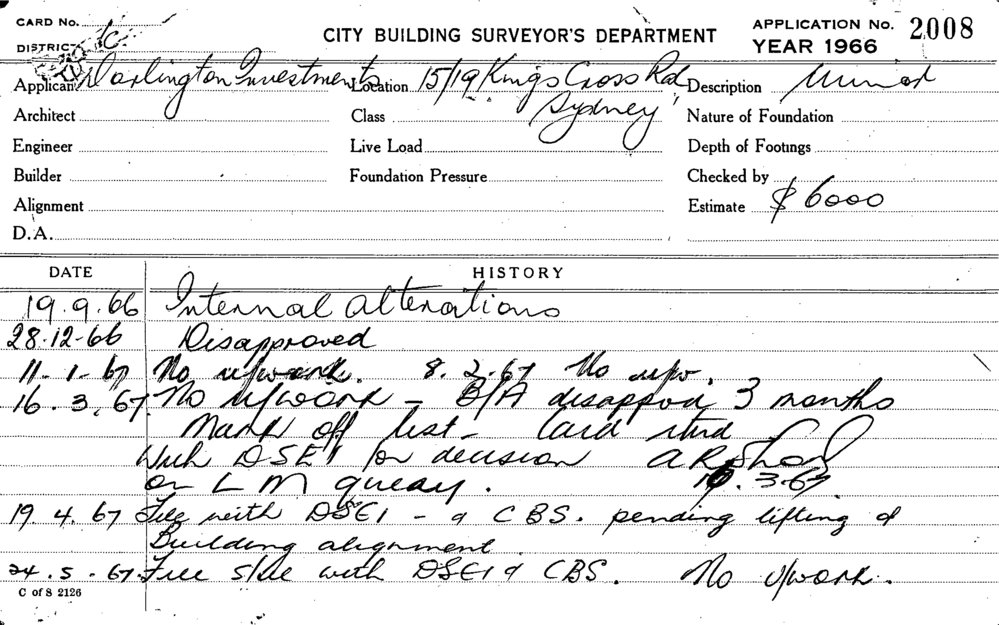 CARD No.
DISTRICT
CITY BUILDING SURVEYOR'S DEPARTMENT
APPLICATION No. 2008
YEAR 1966
Applicant Darlington Investments Location 15/19 Kings Cross Rd Description Minor
Architect Class Sydney Nature of Foundation
Engineer Live Load Depth of Footings
Builder Foundation Pressure Checked by
Alignment Estimate $ 6000
D.A.
DATE HISTORY
19.9.66 Internal alterations
28.12-66 Disapproved
11-1-67 No u/work. 8.2.67 No
16.3.67 No u/work - B/A disappvd 3 months
Mark off list - Card
With DSE1 for decision
on L M query. 3.67
19.4.67 File with DSE1 - & CBS. pending lifting of
Building alignment
24.5.67 File still with DSE1 & CBS. No u/work.
C of S 2126